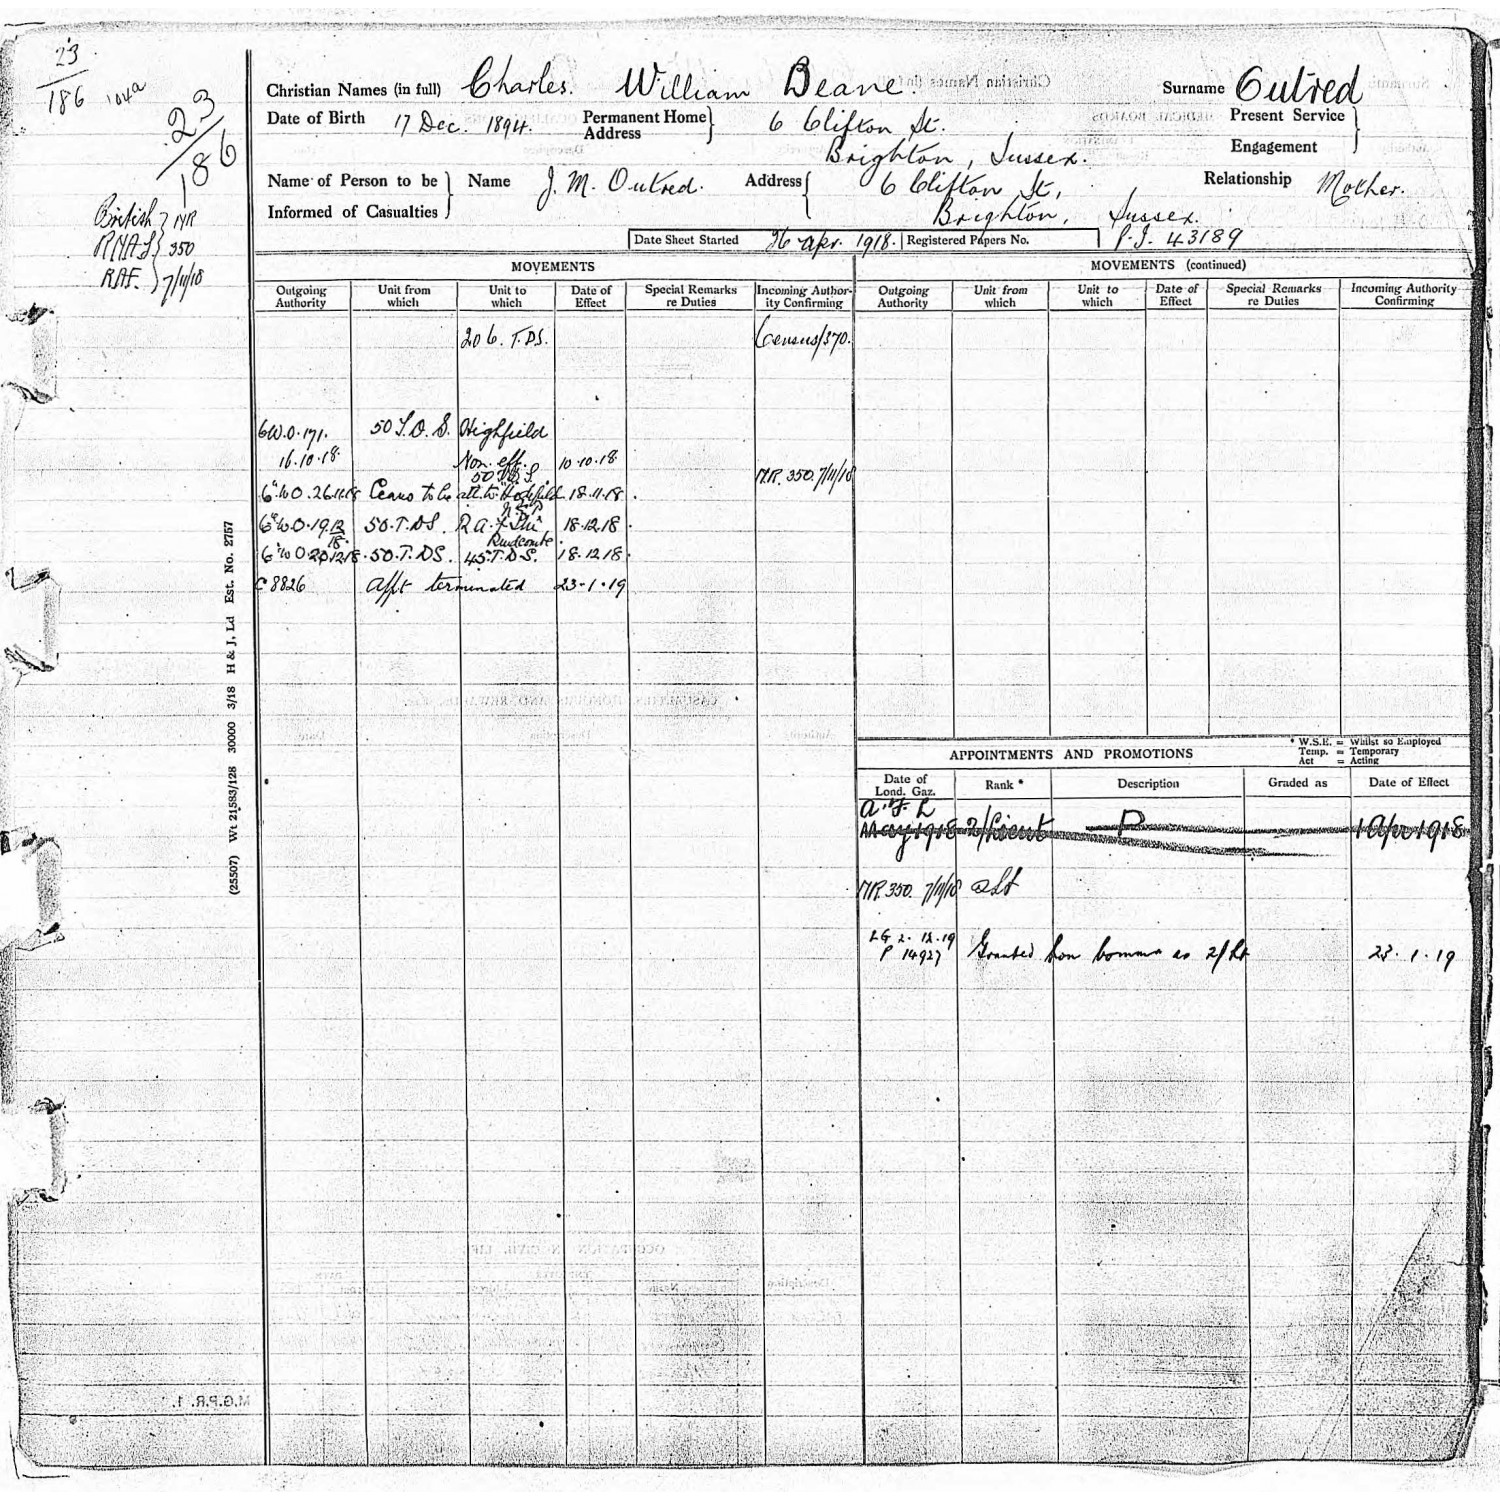 23
186
23
186
British
RNAS
RAF.
MR
350
7/11/18
Christian Names (in full) Charles. William Deane. Surname Outred
Date of Birth 17 Dec. 1894. Permanent Home Address 6 Clifton St. Present Service
Brighton, Sussex. Engagement
Name of Person to be Informed of Casualties Name J. M. Outred. Address 6 Clifton St, Relationship Mother.
Brighton, Sussex.
Date Sheet Started 26 Apr. 1918. Registered Papers No. P.I. 43189
MOVEMENTS
Outgoing Authority Unit from which Unit to which Date of Effect Special Remarks re Duties Incoming Authority Confirming
206. T.D.S. Census/370.
6 W.O. 171. 50 T.D.S. Highfield
16.10.18. Non. eff. 10.10.18
50 T.D.S. MR. 350. 7/11/18
6" W O. 26.11.18 Ceases to be att. to 18.11.18.
6" W O. 19.12.18 50. T.DS. 18.12.18
6" W O 20.12.18. 50. T.DS. 45. T.D.S. 18.12.18.
C 8826 Appt terminated 23.1.19
MOVEMENTS (continued)
Outgoing Authority Unit from which Unit to which Date of Effect Special Remarks re Duties Incoming Authority Confirming
APPOINTMENTS AND PROMOTIONS
* W.S.E. = Whilst so Employed
Temp. = Temporary
Act = Acting
Date of Lond. Gaz. Rank * Description Graded as Date of Effect
A. F. L
May 1918 2/Lieut P 1 Apr 1918
MR. 350. 7/11/18
LG 2. 12.19
P 14927 Granted hon commn as 2/Lt 23.1.19
(25507) Wt 21583/128 30000 3/18 H & J, Ld Est. No. 2757
M.G.P.R. 1.